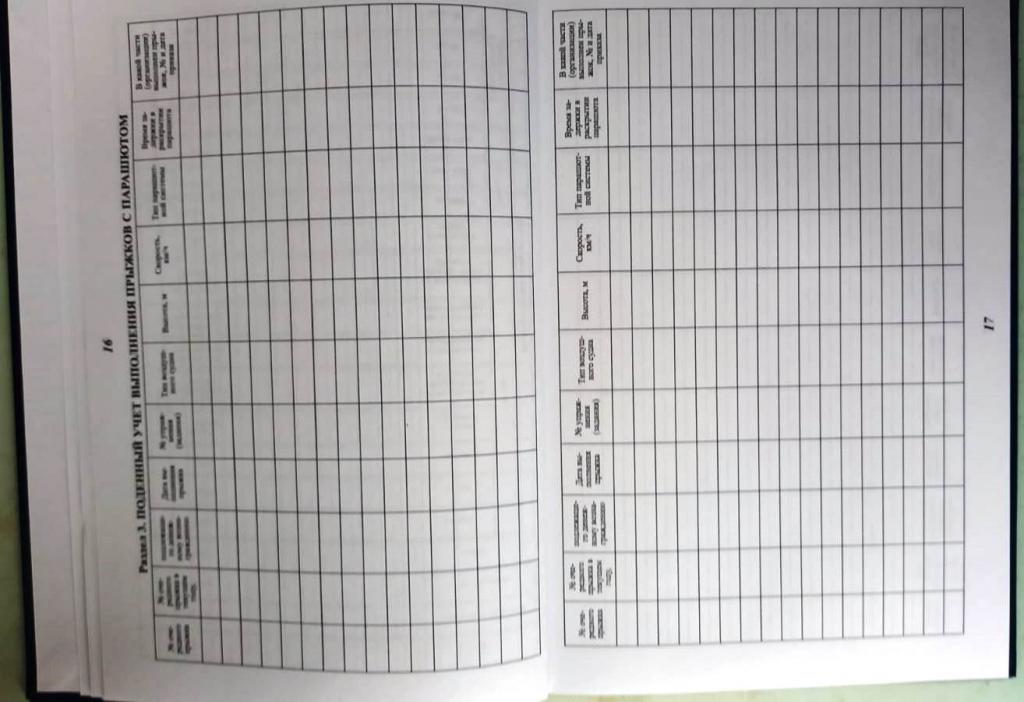 16
Раздел 3. ПОДЕННЫЙ УЧЕТ ВЫПОЛНЕНИЯ ПРЫЖКОВ С ПАРАШЮТОМ
№ оче-
редного
прыжка
№ оче-
редного
прыжка в
текущем
году,
подлежаще-
го денеж-
ному возна-
граждению
Дата вы-
полнения
прыжка
№ упраж-
нения
(задания)
Тип воздуш-
ного судна
Высота, м
Скорость,
км/ч
Тип парашют-
ной системы
Время за-
держки в
раскрытии
парашюта
В какой части
(организации)
выполнен пры-
жок, № и дата
приказа
№ оче-
редного
прыжка
№ оче-
редного
прыжка в
текущем
году,
подлежаще-
го денеж-
ному возна-
граждению
Дата вы-
полнения
прыжка
№ упраж-
нения
(задания)
Тип воздуш-
ного судна
Высота, м
Скорость,
км/ч
Тип парашют-
ной системы
Время за-
держки в
раскрытии
парашюта
В какой части
(организации)
выполнен пры-
жок, № и дата
приказа
17